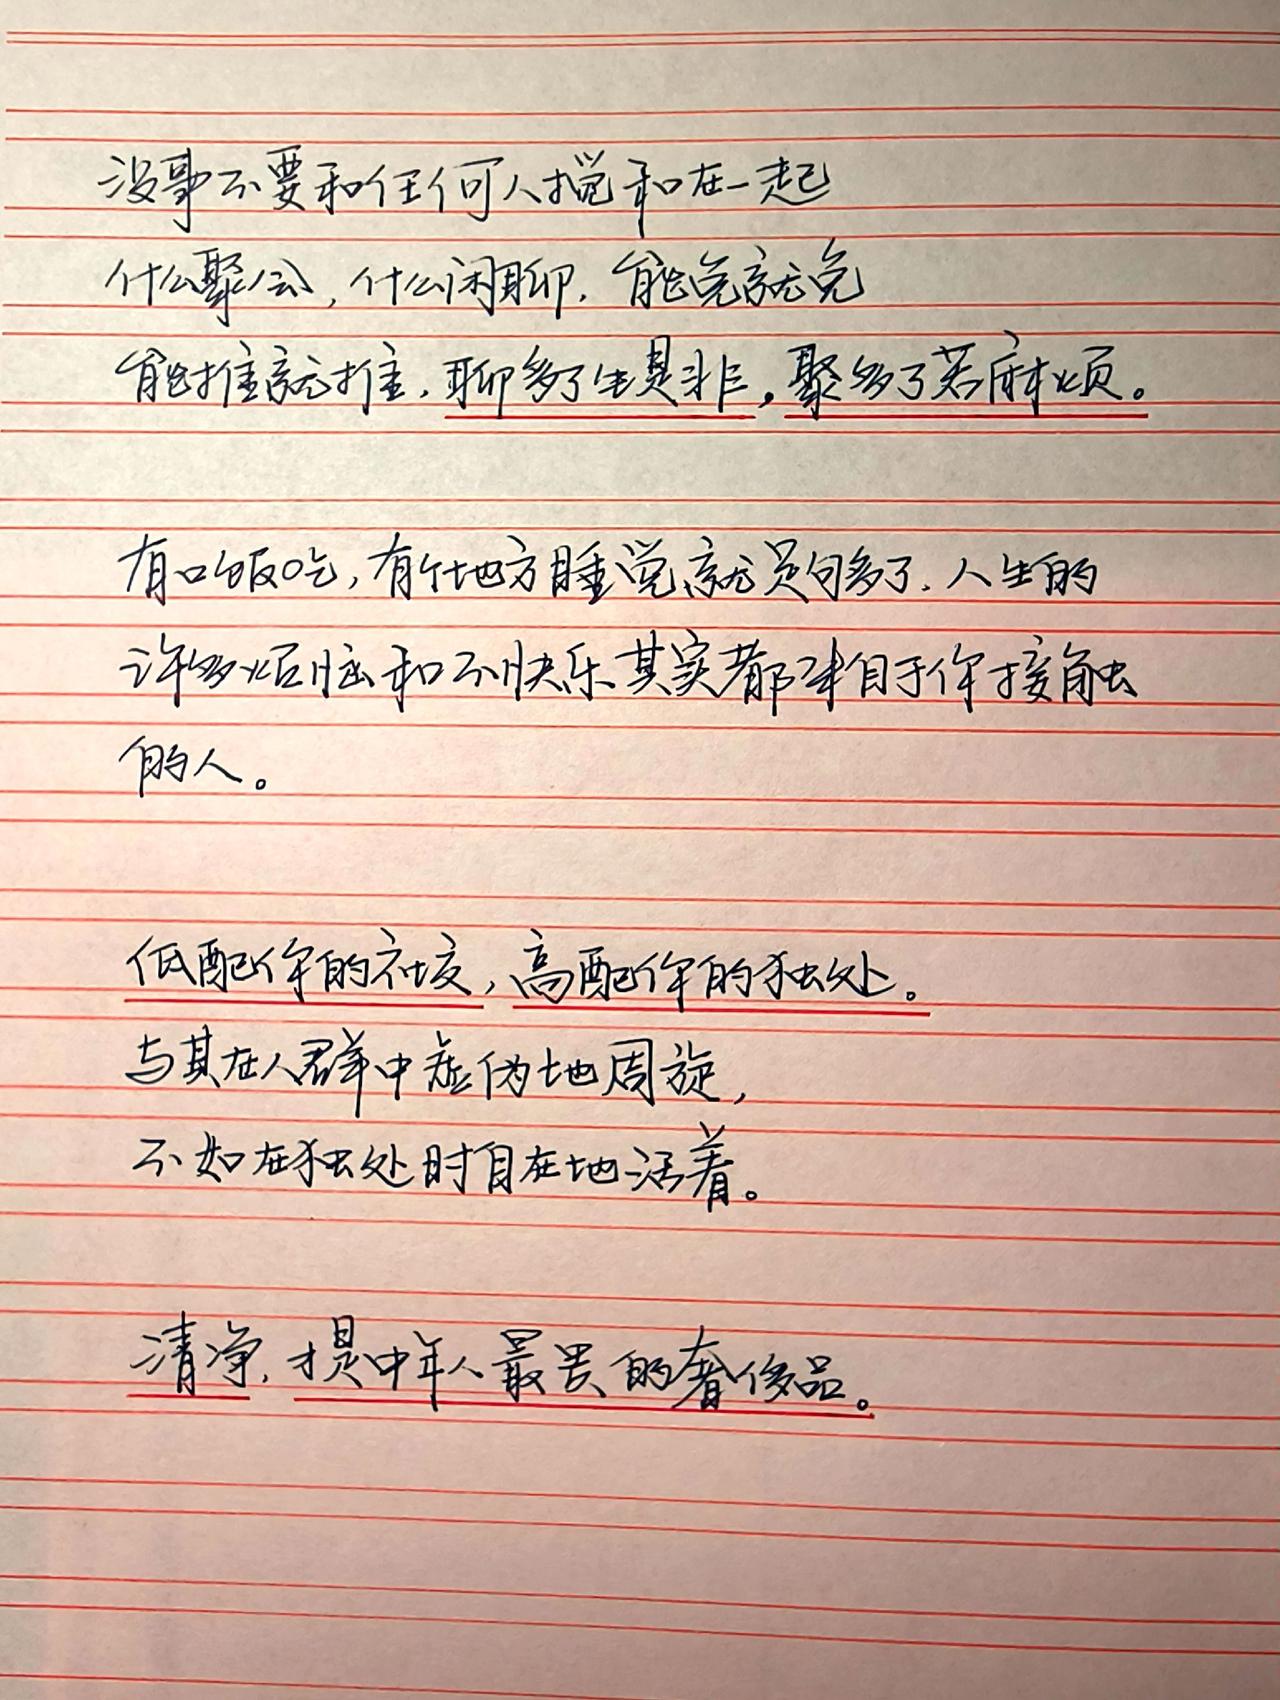 没事不要和任何人搅和在一起
什么聚会,什么闲聊,能免就免
能推就推,聊多了生是非,聚多了惹麻烦。
有口饭吃,有个地方睡觉就足够多了,人生的
许多烦恼和不快乐其实都来自于你接触
的人。
低配你的社交,高配你的独处。
与其在人群中虚伪地周旋,
不如在独处时自在地活着。
清净,才是中年人最贵的奢侈品。